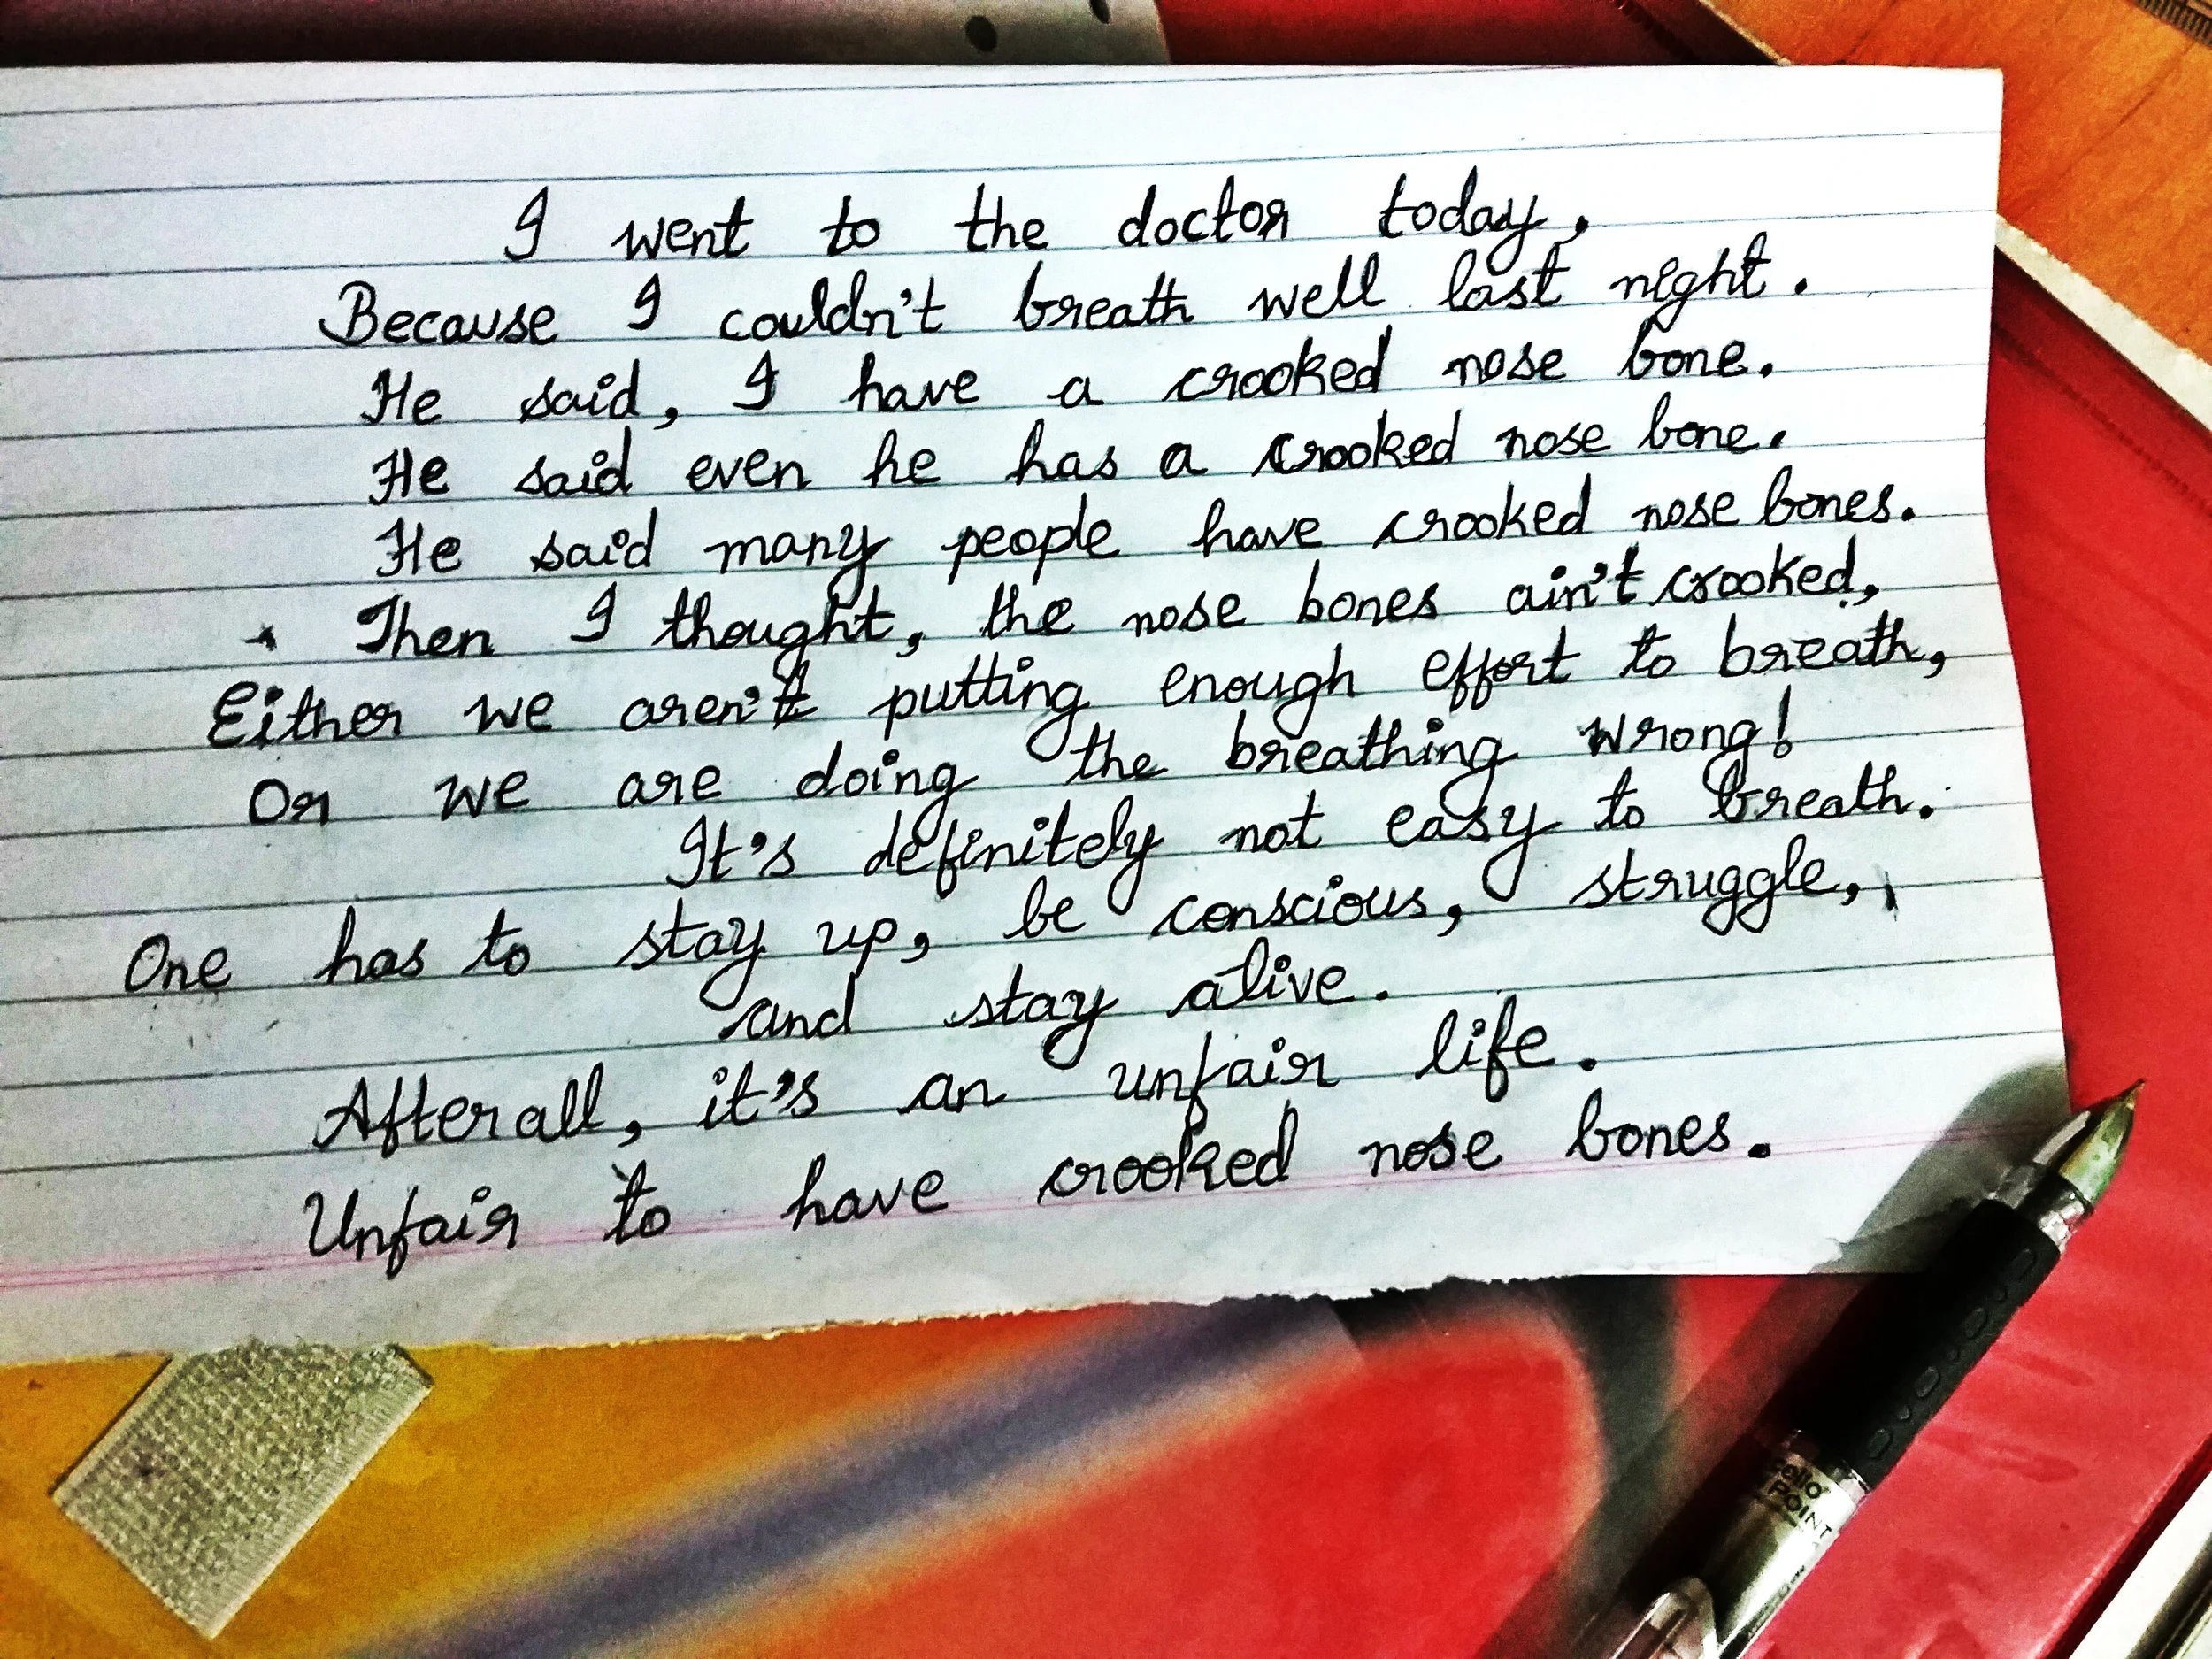 I went to the doctor today,
Because I couldn't breath well last night.
He said, I have a crooked nose bone.
He said even he has a crooked nose bone.
He said many people have crooked nose bones.
Then I thought, the nose bones ain't crooked,
Either we aren't putting enough effort to breath,
Or we are doing the breathing wrong!
It's definitely not easy to breath.
One has to stay up, be conscious, struggle,
and stay alive.
Afterall, it's an unfair life.
Unfair to have crooked nose bones.
cello
POINT